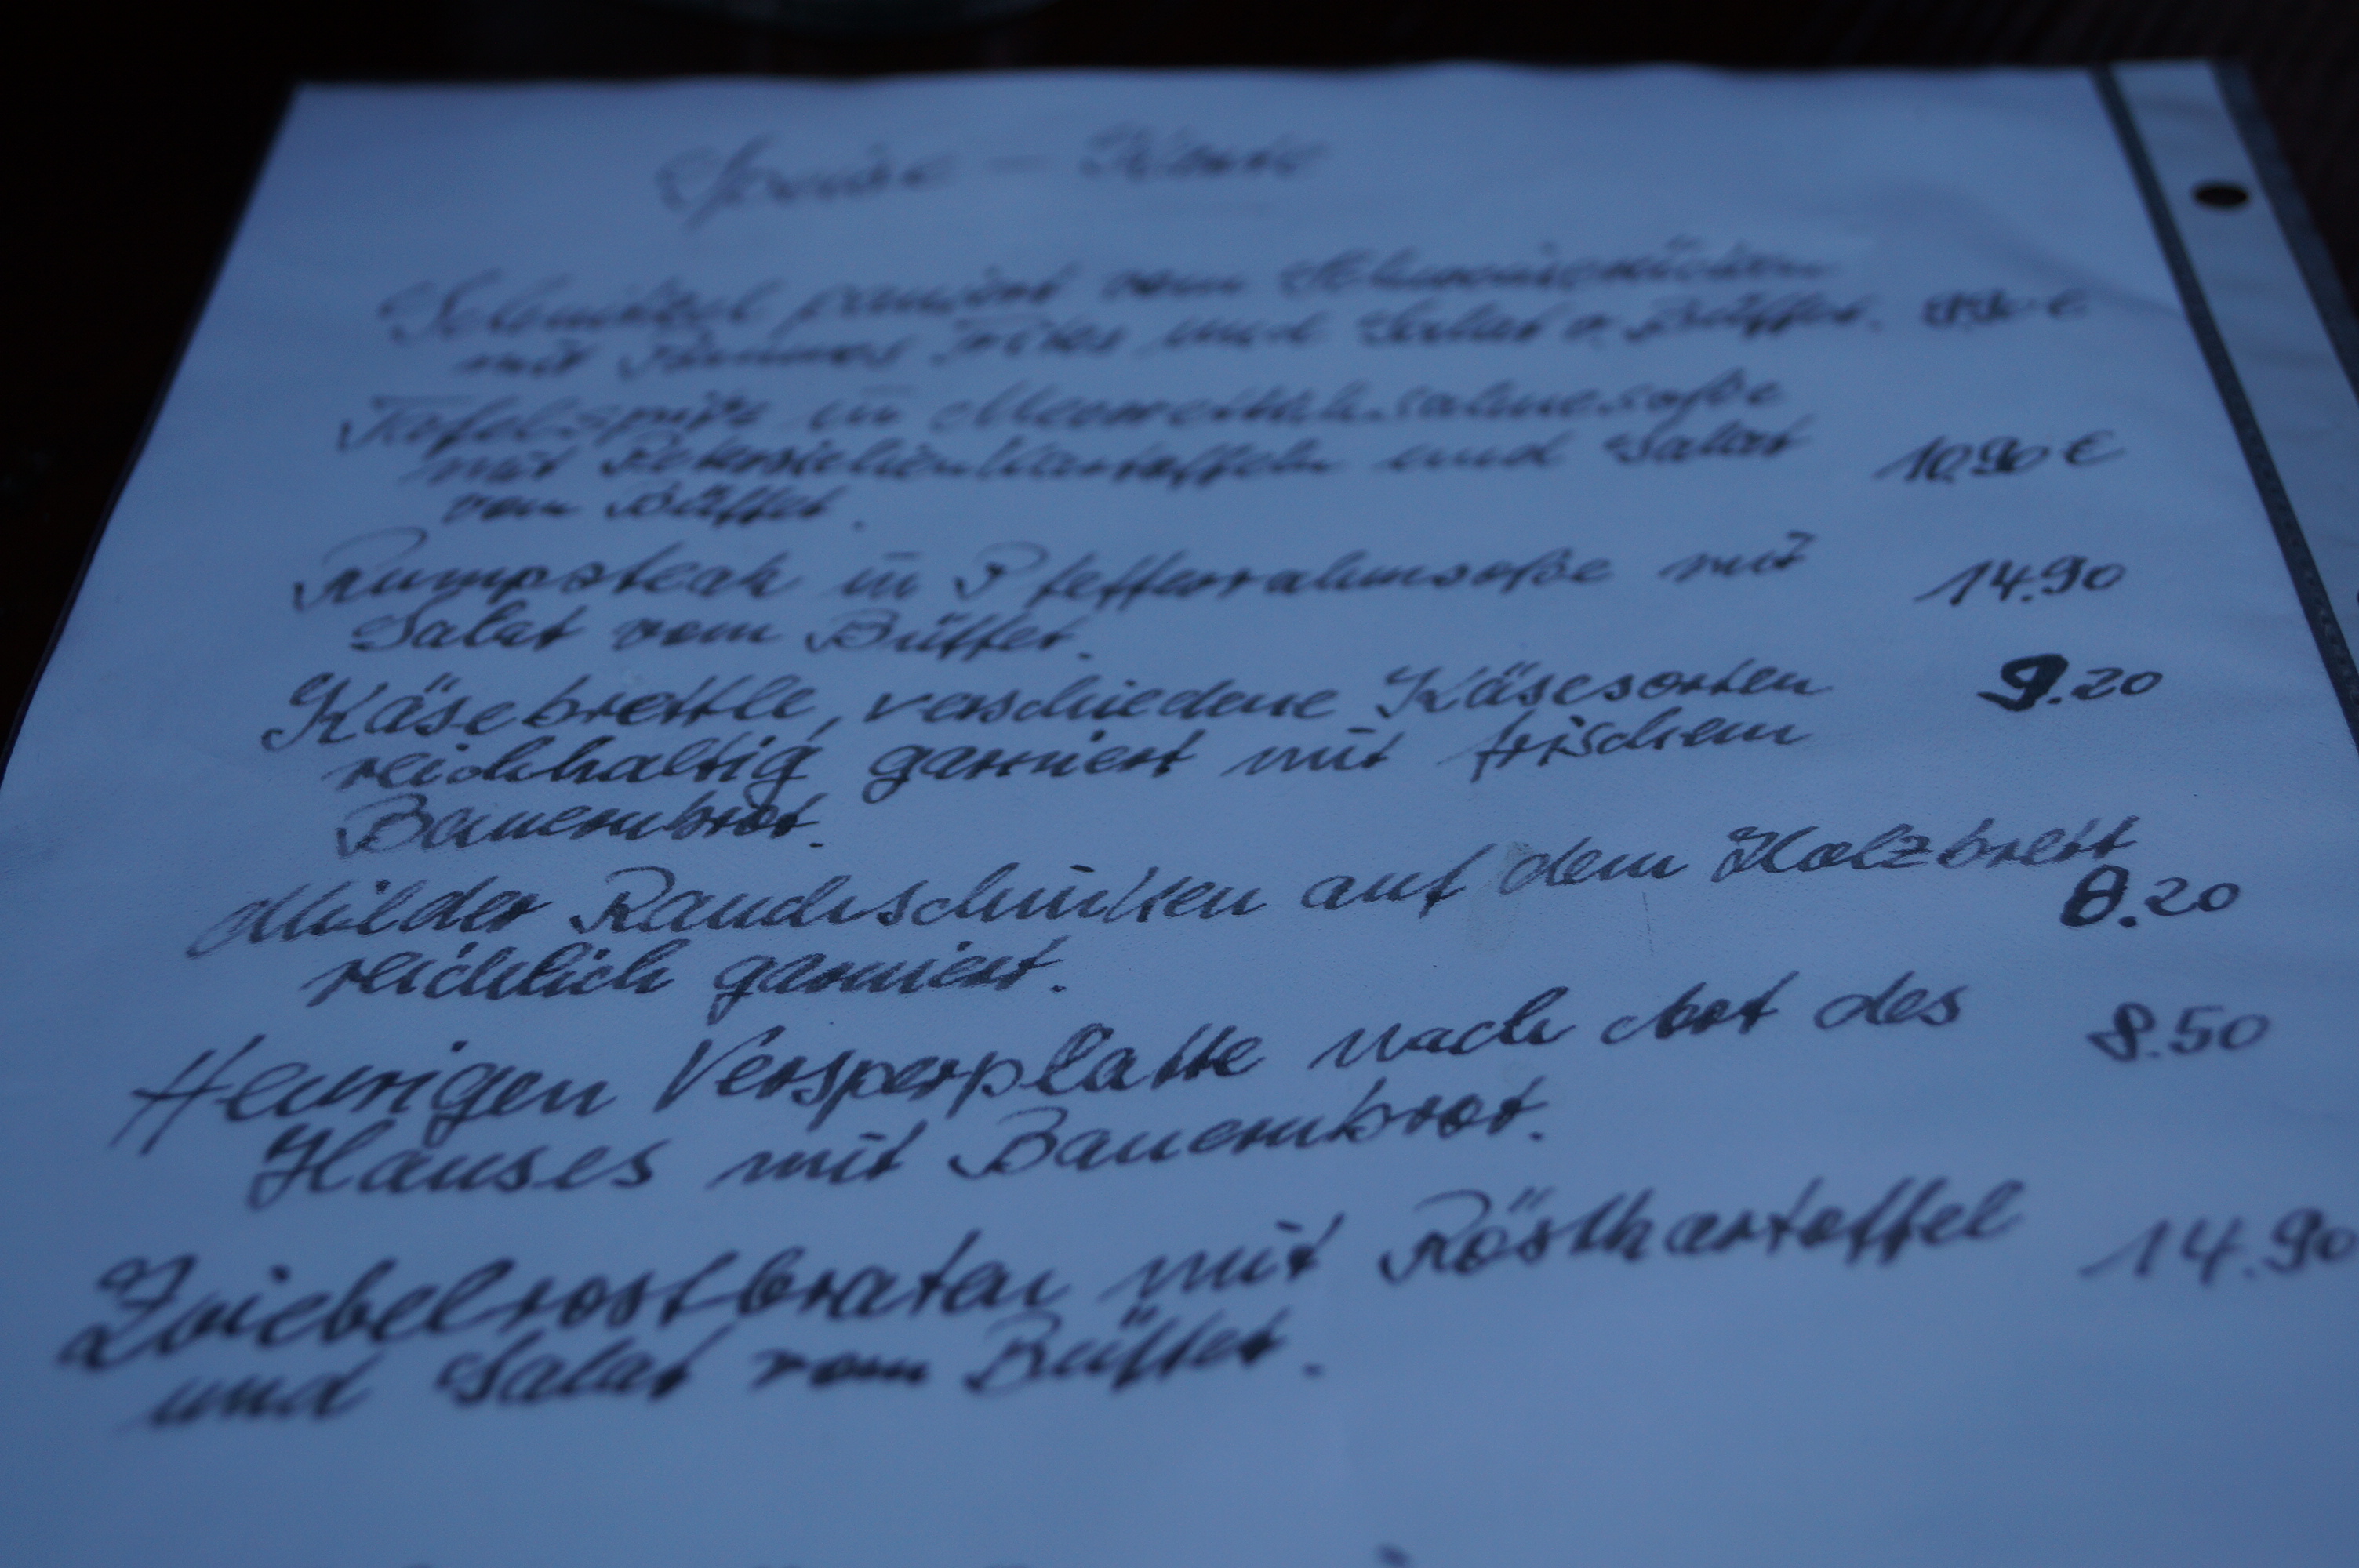 Speise - Karte
Schnitzel paniert vom Schweinerücken
mit Pommes Frites und Salat v. Büffet.
Tafelspitz in Meerrettichsahnesoße
mit Petersilienkartoffeln und Salat 10.90 €
vom Büffet.
Rumpsteak in Pfefferrahmsoße mit 14.90
Salat vom Büffet.
Käsebrettle, verschiedene Käsesorten 9.20
reichhaltig garniert mit frischem
Bauernbrot.
Milder Rauchschinken auf dem Holzbrett
reichlich garniert. 8.20
Heurigen Versperplatte nach Art des 8.50
Hauses mit Bauernbrot.
Zwiebelrostbraten mit Röstkartoffel 14.90
und Salat vom Büffet.